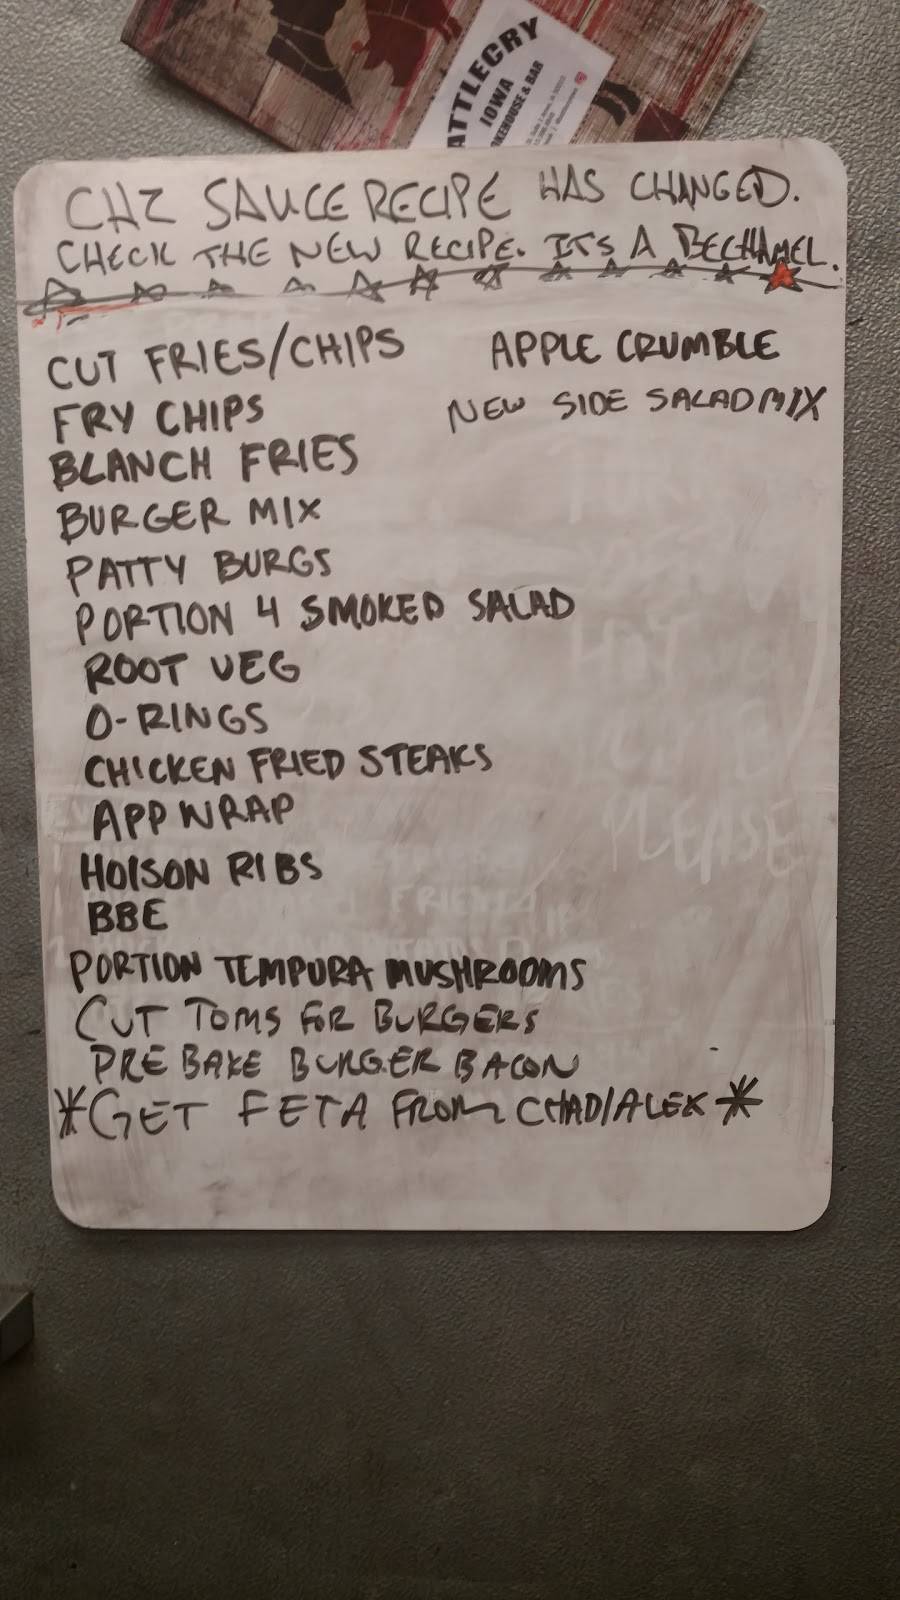 ATTLECRY
IOWA
KEHOUSE & BAR
CHZ SAUCE RECIPE HAS CHANGED.
CHECK THE NEW RECIPE. ITS A BECHAMEL.
CUT FRIES/CHIPS
FRY CHIPS
BLANCH FRIES
BURGER MIX
PATTY BURGS
PORTION 4 SMOKED SALAD
ROOT VEG
O-RINGS
CHICKEN FRIED STEAKS
APP WRAP
HOISON RIBS
BBE
PORTION TEMPURA MUSHROOMS
CUT TOMS FOR BURGERS
PRE BAKE BURGER BACON
*GET FETA FROM CHAD/ALEX*
APPLE CRUMBLE
NEW SIDE SALAD MIX
PLEASE